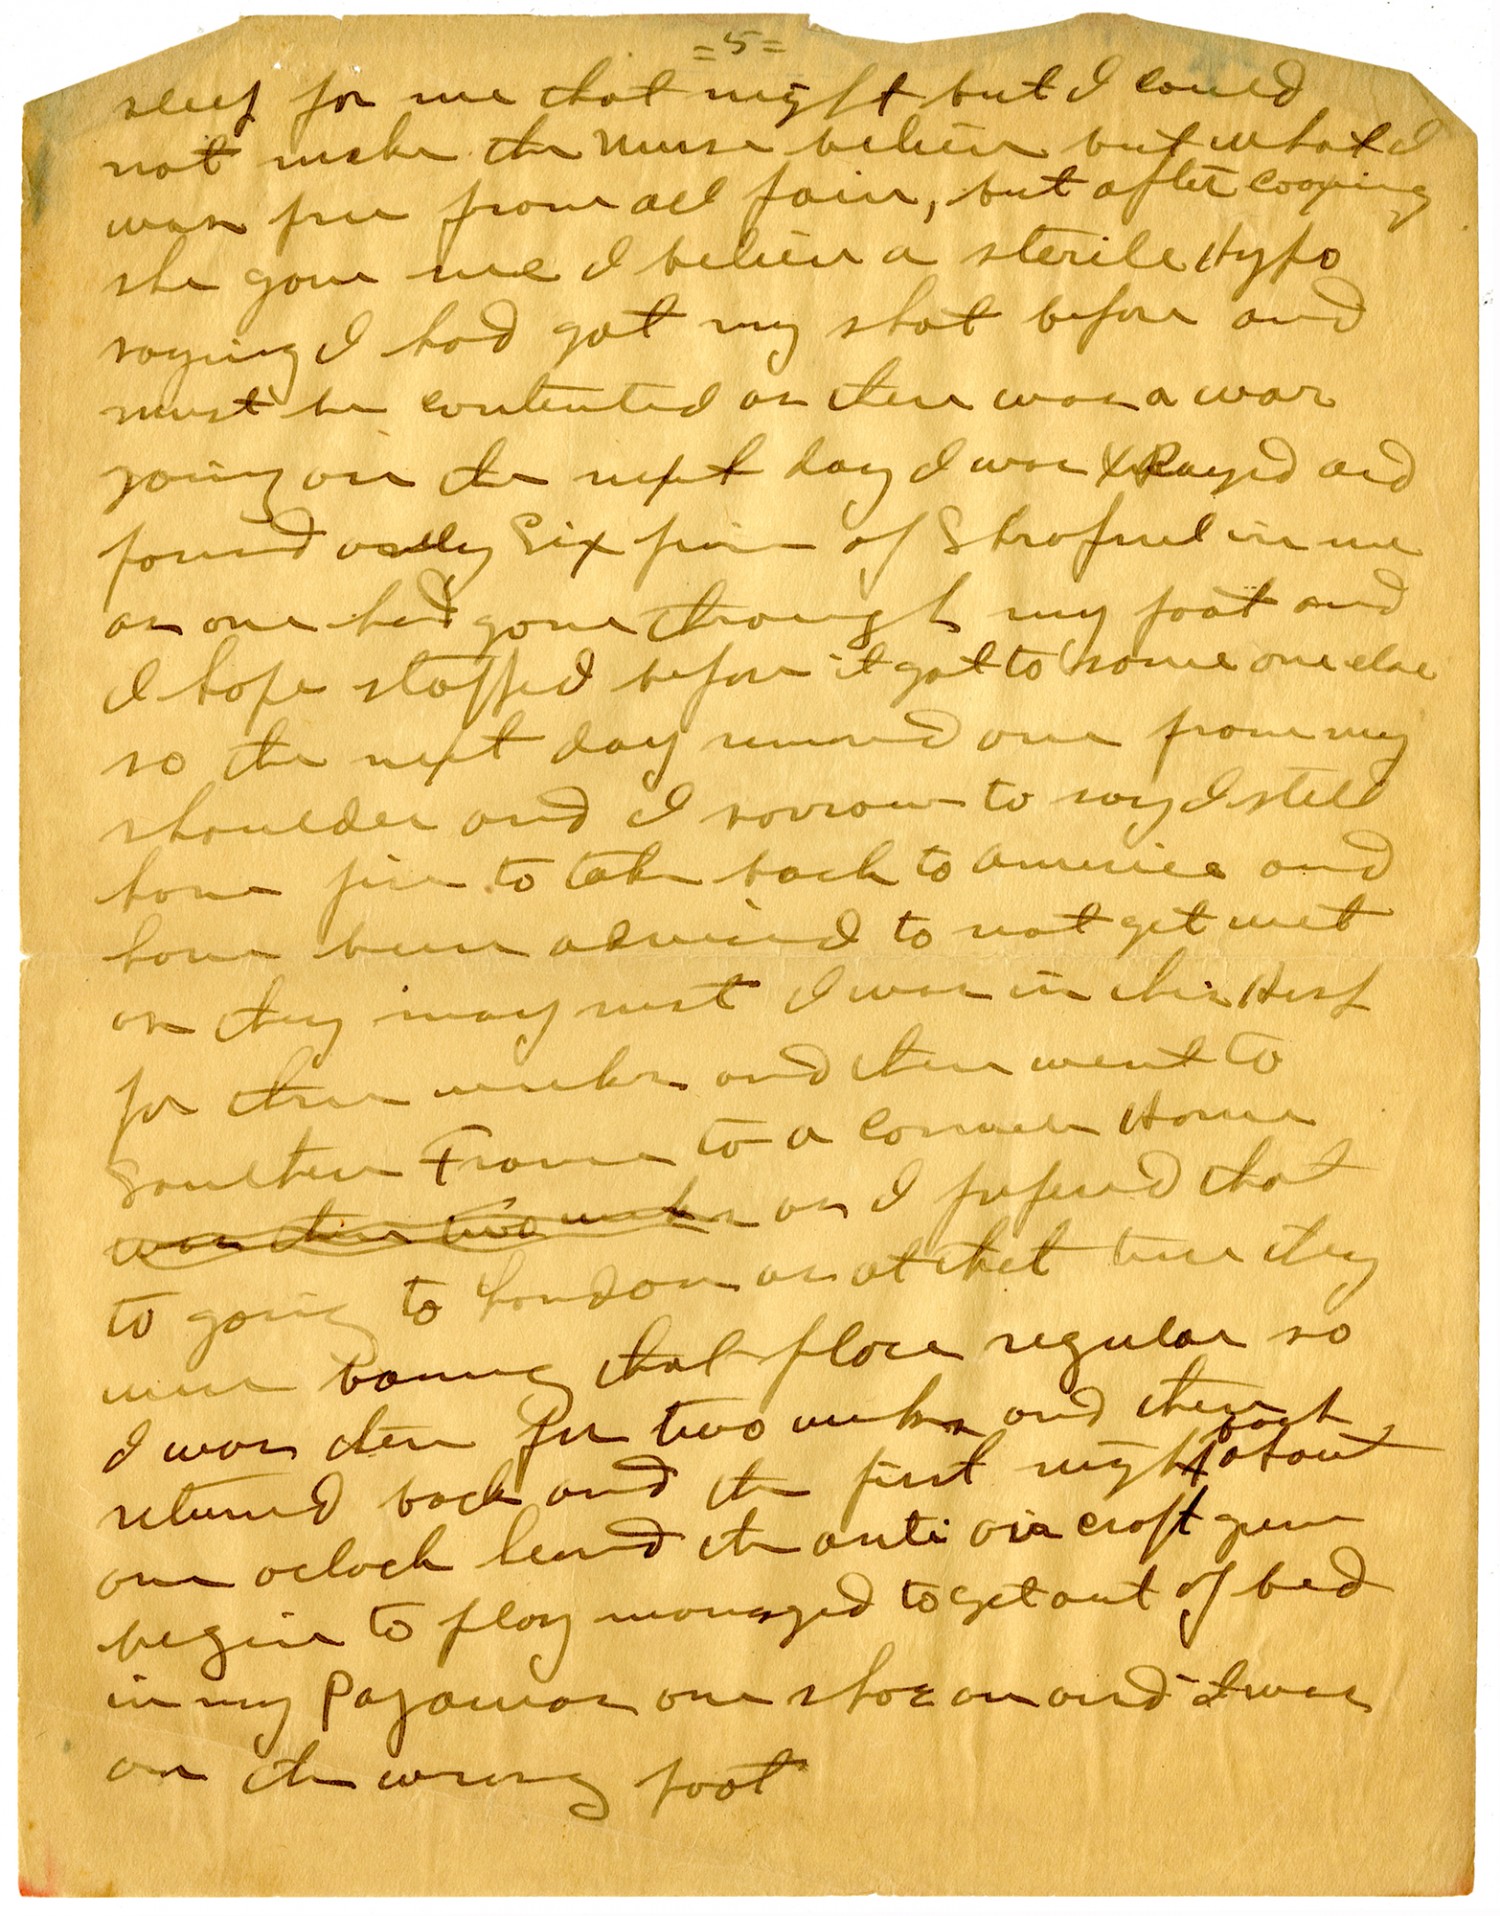 =5=
sleep for me that night but I could
not make the Nurse believe but what I
was free from all pain, but after coaxing
she gave me I believe a sterile Hypo
saying I had got my shot before and
must be contented as there was a war
going on the next day I was X Rayed and
found only Six piece of Shrapnel in me
as one had gone through my foot and
I hope stopped before it got to some one else
so the next day removed one from my
shoulder and I sorrow to say I still
have five to take back to America and
have been advised to not get wet
as they may rust I was in this Hosp
for three weeks and then went to
Southern France to a Convalen Home
was there two weeks as I prefered that
to going to London as at that time they
were boming that place regular so
I was there for two weeks and then
returned back and the first night back about
one oclock heard the anti air craft guns
begin to play managed to get out of bed
in my Pajamas one shoe on and it was
on the wrong foot